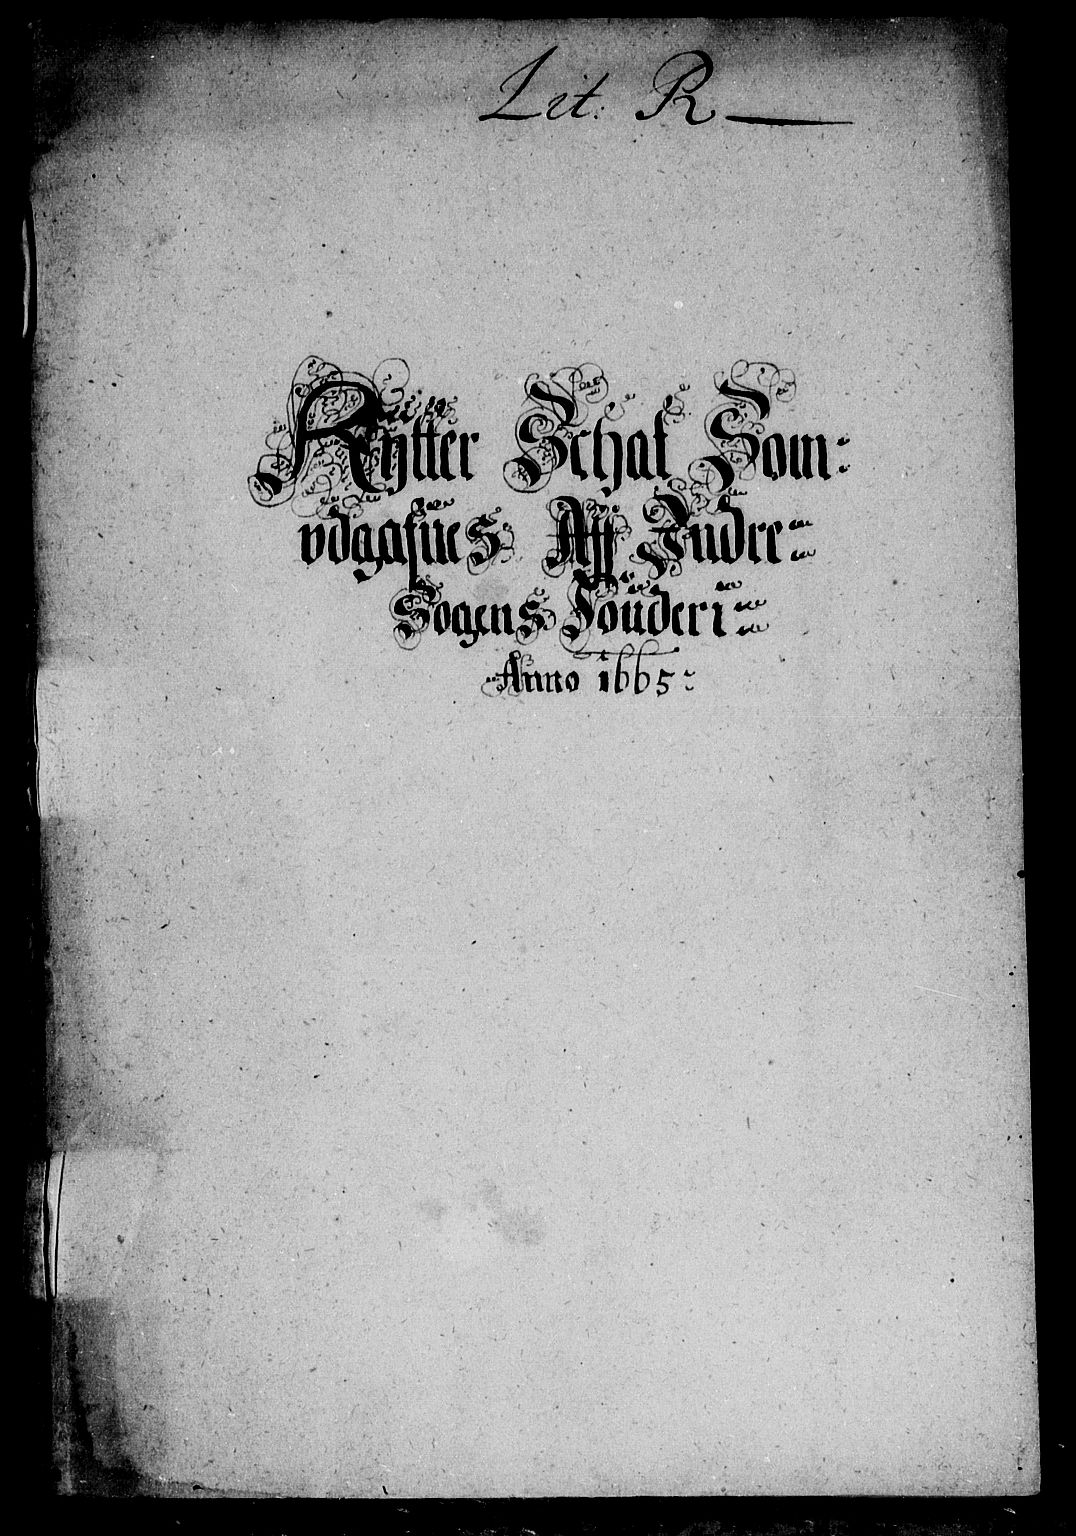 Lit: R
Rytter Schat Som:
vdgafues Aff Indre:
Sogens Fouderi:
Anno 1665: